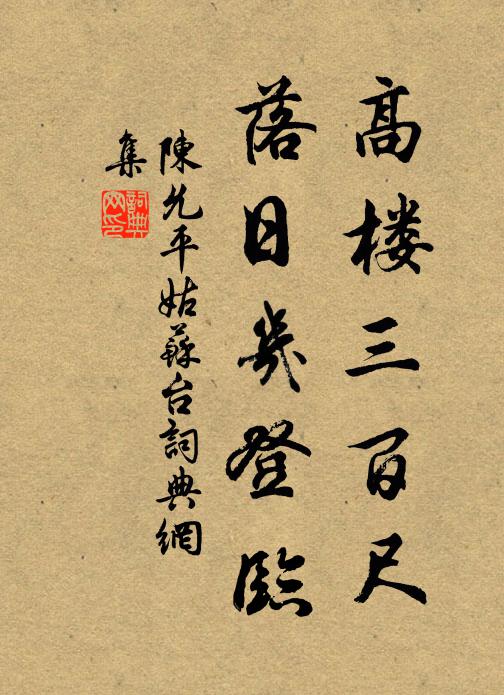 高楼三百尺
落日幾登臨
陳允平姑蘇台詞典網
集
詞典网印